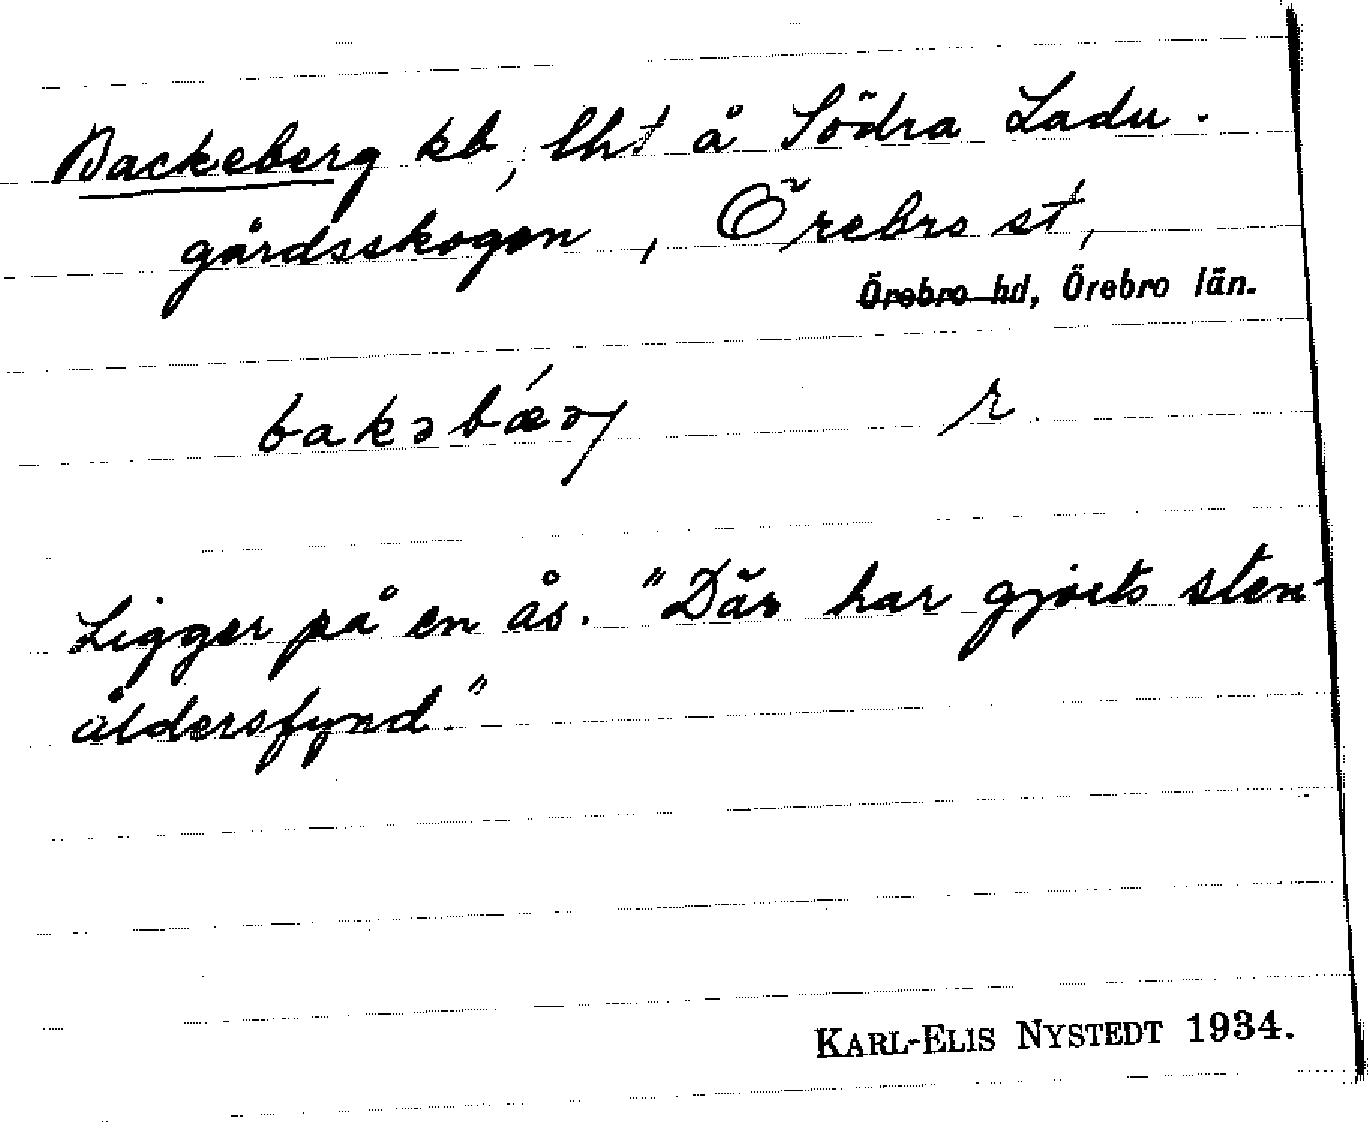 Backeberg kb, lht å Södra Ladu-
gårdsskogen, Örebro st,
Örebro hd, Örebro län.
bakəbǽrj r
Ligger på en ås. "Där har gjorts sten-
åldersfynd."
KARL-ELIS NYSTEDT 1934.